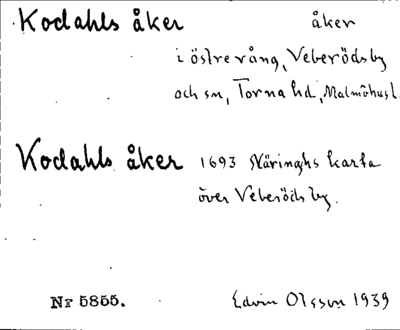 Kodahls åker åker
i östre vång, Veberöds by
och sn, Torna hd, Malmöhus l.
Kodahls åker 1693 Näringhs karta
över Veberöds by.
Nr 5855. Edvin Olsson 1939